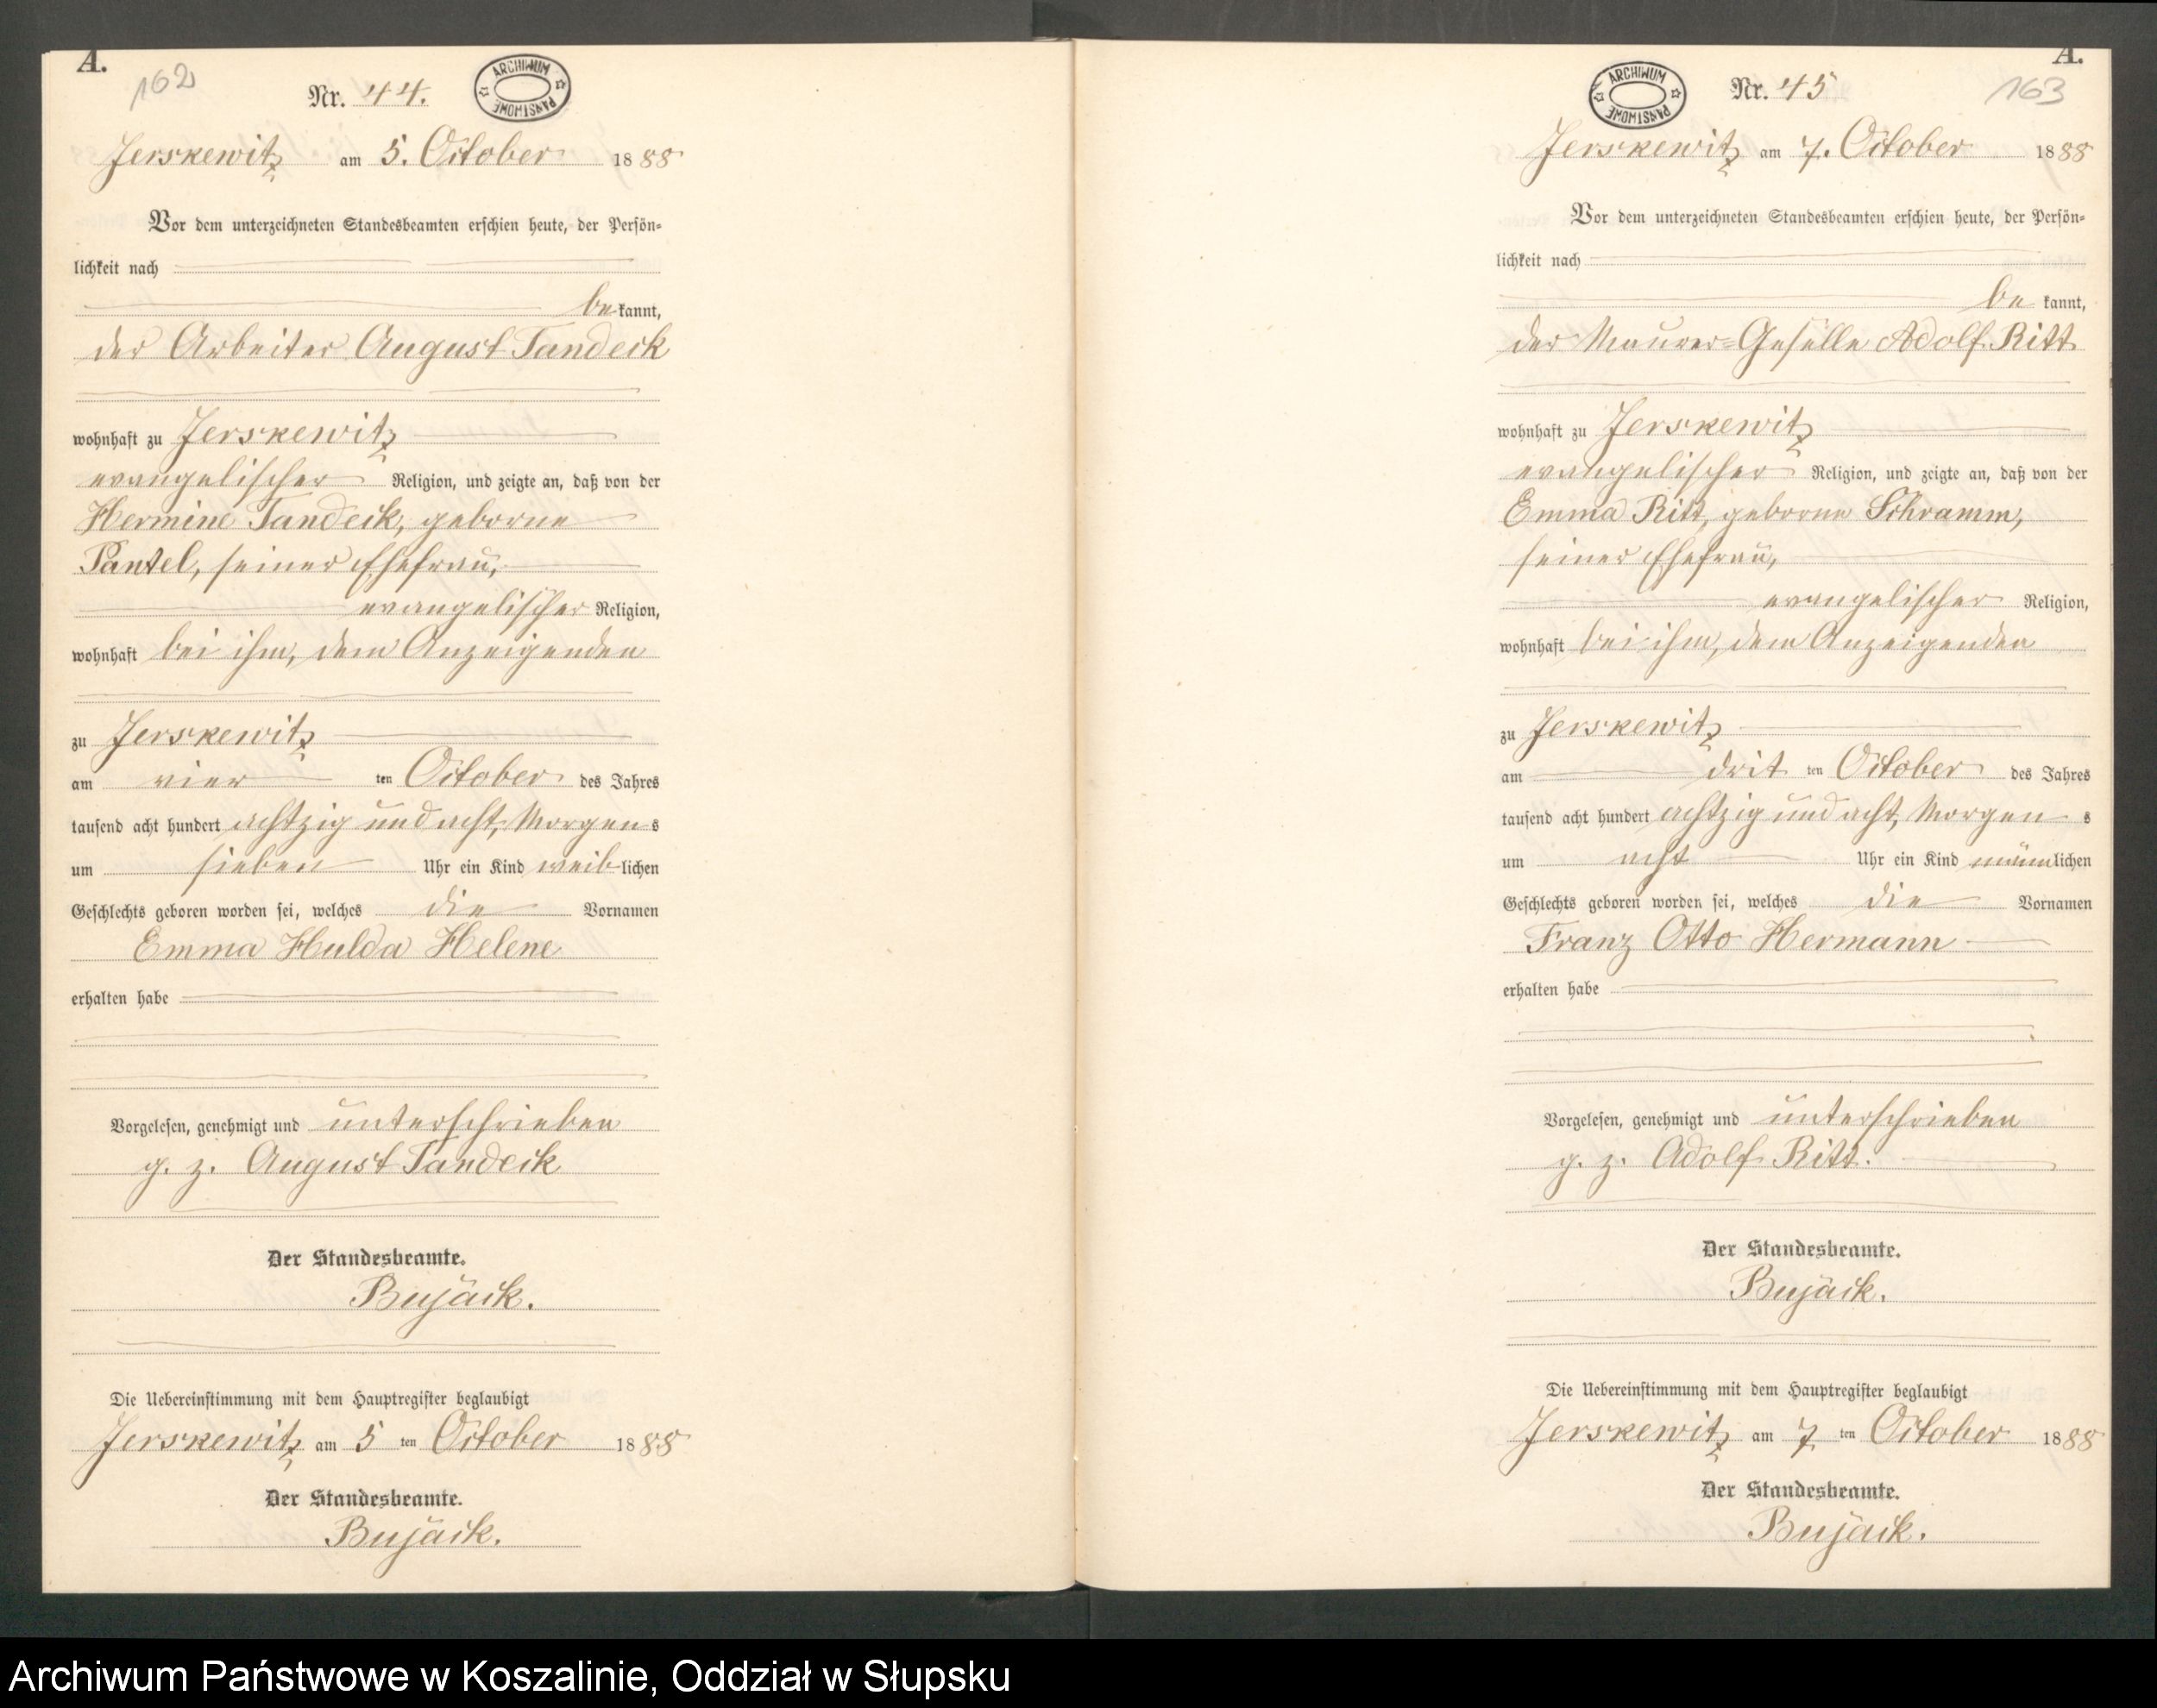 A.
162
Nr. 44.
ARCHIWUM PAŃSTWOWE
Jerskewitz am 5. October 1888
Vor dem unterzeichneten Standesbeamten erschien heute, der Persön-
lichkeit nach
bekannt,
der Arbeiter August Tandeck
wohnhaft zu Jerskewitz
evangelischer Religion, und zeigte an, daß von der
Hermine Tandeck, geborne
Pantel, seiner Ehefrau,
evangelischer Religion,
wohnhaft bei ihm, dem Anzeigenden
zu Jerskewitz
am vier ten October des Jahres
tausend acht hundert achtzig und acht, Morgens
um sieben Uhr ein Kind weiblichen
Geschlechts geboren worden sei, welches die Vornamen
Emma Hulda Helene
erhalten habe
Vorgelesen, genehmigt und unterschrieben
g. z. August Tandeck
Der Standesbeamte.
Bujack.
Die Uebereinstimmung mit dem Hauptregister beglaubigt
Jerskewitz am 5 ten October 1888
Der Standesbeamte.
Bujack.
A.
163
Nr. 45
ARCHIWUM PAŃSTWOWE
Jerskewitz am 7. October 1888
Vor dem unterzeichneten Standesbeamten erschien heute, der Persön-
lichkeit nach
bekannt,
der Maurer-Geselle Adolf Ritt
wohnhaft zu Jerskewitz
evangelischer Religion, und zeigte an, daß von der
Emma Ritt, geborne Schramm,
seiner Ehefrau,
evangelischer Religion,
wohnhaft bei ihm, dem Anzeigenden
zu Jerskewitz
am drit ten October des Jahres
tausend acht hundert achtzig und acht, Morgens
um acht Uhr ein Kind männlichen
Geschlechts geboren worden sei, welches die Vornamen
Franz Otto Hermann
erhalten habe
Vorgelesen, genehmigt und unterschrieben
g. z. Adolf Ritt.
Der Standesbeamte.
Bujack.
Die Uebereinstimmung mit dem Hauptregister beglaubigt
Jerskewitz am 7 ten October 1888
Der Standesbeamte.
Bujack.
Archiwum Państwowe w Koszalinie, Oddział w Słupsku